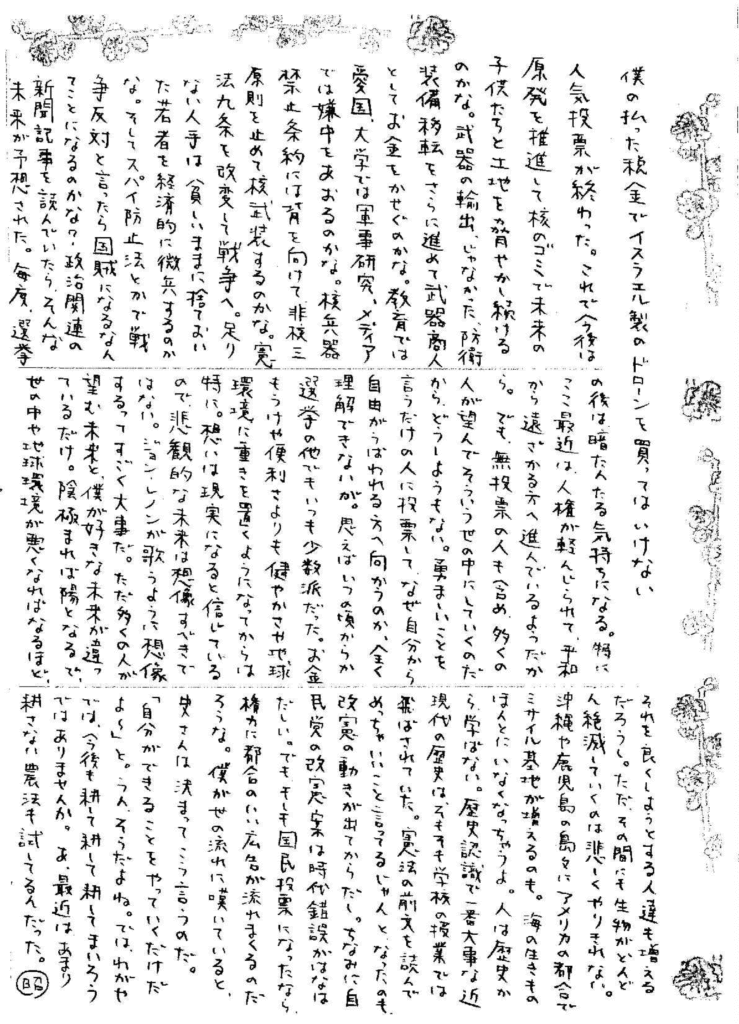 僕の払った税金でイスラエル製のドローンを買ってはいけない
人気投票が終わった。これで今後は
原発を推進して核のゴミで未来の
子供たちと土地を脅やかし続ける
のかな。武器の輸出、じゃなかった、防衛
装備移転をさらに進めて武器商人
としてお金をかせぐのかな。教育では
愛国、大学では軍事研究、メディア
では嫌中をあおるのかな。核兵器
禁止条約には背を向けて、非核三
原則を止めて核武装するのかな。憲
法九条を改変して戦争へ。足り
ない人手は貧しいままに捨ておい
た若者を経済的に徴兵するのか
な。そしてスパイ防止法とかで戦
争反対と言ったら国賊になるなん
てことになるのかな?政治関連の
新聞記事を読んでいたら、そんな
未来が予想された。毎度、選挙
の後は暗たんたる気持ちになる。特に
ここ最近は、人権が軽んじられて、平和
から遠ざかる方へ進んでいるようだか
ら。でも、無投票の人も含め、多くの
人が望んでそういう世の中にしていくのだ
から、どうしようもない。勇ましいことを
言うだけの人に投票して、なぜ自分から
自由がうばわれる方へ向かうのか、全く
理解できないが。思えばいつの頃からか
選挙の他でもいつも少数派だった。お金
もうけや便利さよりも健やかさや地球
環境に重きを置くようになってからは
特に。想いは現実になると信じている
ので、悲観的な未来は想像すべきで
はない。ジョン・レノンが歌うように想像
するってすごく大事だ。ただ多くの人が
望む未来と、僕が好きな未来が違っ
ているだけ。陰極まれば陽となるで、
世の中や地球環境が悪くなればなるほど、
それを良くしようとする人達も増える
だろうし。ただ、その間にも生物がどんど
ん絶滅していくのは悲しくやりきれない。
沖縄や鹿児島の島々にアメリカの都合で
ミサイル基地が増えるのも。海の生きもの
ほんとにいなくなっちゃうよ。人は歴史か
ら学ばない。歴史認識で一番大事な近
現代の歴史はそもそも学校の授業では
飛ばされていた。憲法の前文を読んで
めっちゃいいこと言ってるじゃん、となったのも、
改憲の動きが出てからだし。ちなみに自
民党の改憲案は時代錯誤がはなは
だしい。でも、もしも国民投票になったなら、
権力に都合のいい広告が流れまくるのだ
ろうな。僕が世の流れに嘆いていると、
史さんは決まってこう言うのだ。
「自分ができることをやっていくだけだ
よ〜」と。うん、そうだよね。では、わがや
では、今後も耕して耕して耕してまいろう
ではありませんか。あ、最近は、あまり
耕さない農法も試してるんだった。
昭